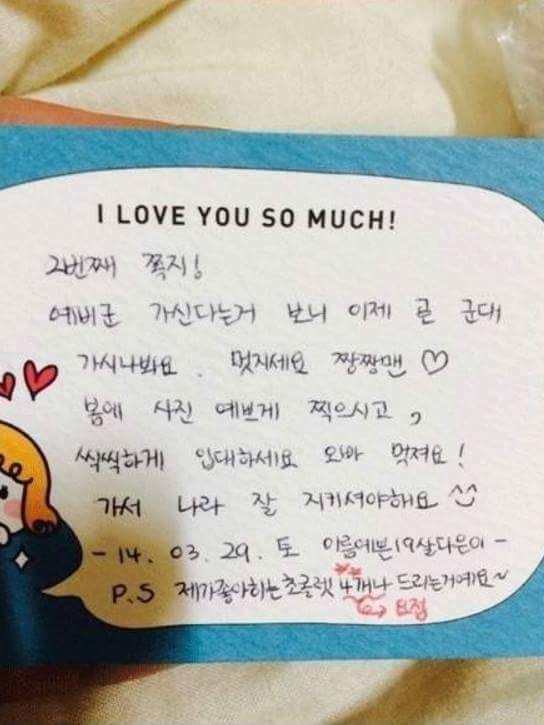 I LOVE YOU SO MUCH!
2번째 쪽지!
예비군 가신다는거 보니 이제 곧 군대
가시나봐요. 멋지세요 짱짱맨 ♡
봄에 사진 예쁘게 찍으시고,
씩씩하게 입대하세요 오빠 멋져요!
가서 나라 잘 지키셔야해요 ^^
- 14. 03. 29. 토 이름예쁜19살다은이 -
P.S 제가좋아하는초콜렛 4개나 드리는거예요~
요점